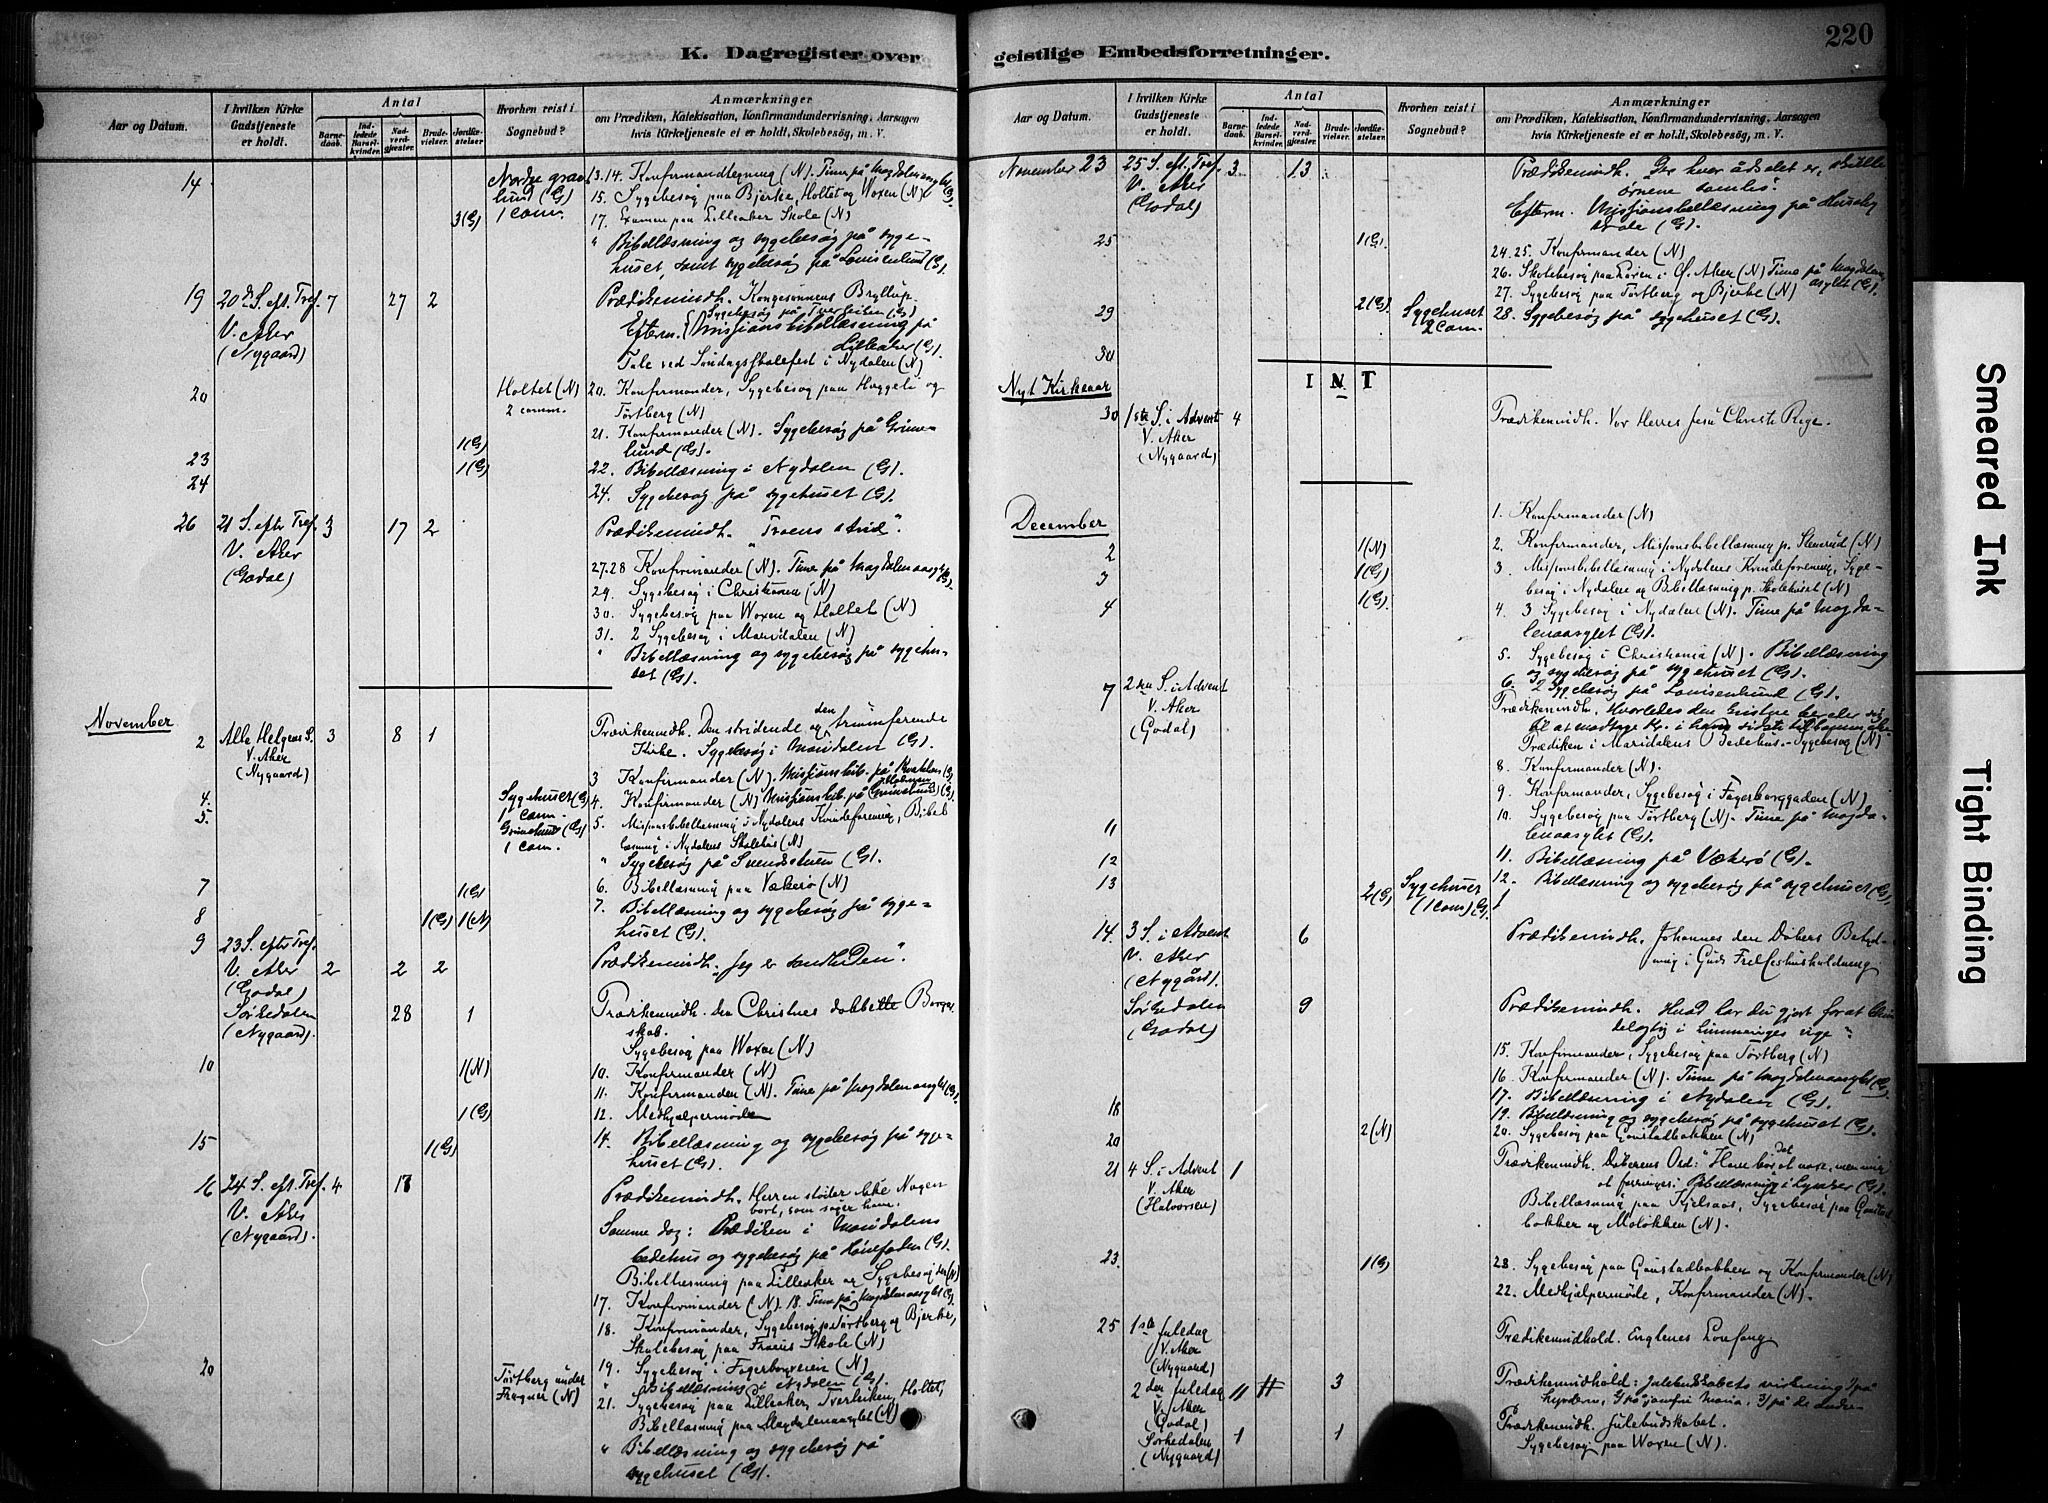 220
K. Dagregister over geistlige Embedsforretninger.
Aar og Datum.
I hvilken Kirke Gudstjeneste er holdt.
Antal
Barnedaab.
Indledede Barselkvinder.
Nadverdgjester.
Brudevielser.
Jordfæstelser
Hvorhen reist i Sognebud?
Anmærkninger
om Prædiken, Katekisation, Konfirmandundervisning, Aarsagen
hvis Kirketjeneste ei er holdt, Skolebesøg, m. V.
14
3(G)
lund (G)
1 Com.
13. 14. Konfirmandlegning (N). Time på Magdalenaasylet (G).
15. Sygebesøg paa Bjerke, Holtet og Woxen (N)
17. Examen paa Lilleaker Skole (N)
" Bibellæsning og sygebesøg på syge-
huset, samt sygebesøg på Louisenlund (G).
19 20de S. eft. Tref. 7 27 2
V. Aker
(Nygaard)
Prædikenindh. Kongesønnens Bryllup.
Sygebesøg på Tverleiken (G)
Efterm. Missionsbibellæsning på
Lilleaker (G).
Tale ved Søndagsskolefest i Nydalen (N)
20
Holtet (N)
2 comm.
20. Konfirmander, Sygebesøg paa Huggeli og
Tørtberg (N)
21. Konfirmander (N). Sygebesøg på Grime-
lund (G).
23 1(G)
24 1(G)
22. Bibellæsning i Nydalen (G).
24. Sygebesøg på sygehuset (G).
26 21 S. eftr Tref. 3 17 2
V. Aker
(Godal)
Prædikenindh. "Troens strid".
27-28 Konfirmander (N). Time på Magdalenaasylet (G).
29. Sygebesøg i Christiania (N)
30. Sygebesøg paa Woxen og Holtet (N)
31. 2 Sygebesøg i Maridalen (N)
" Bibellæsning og sygebesøg på sygehu-
set (G).
November
2 Alle Helgens S. 3 8 1
V. Aker
(Nygaard)
Prædikenindh. Den stridende og den triumferende
Kirke. Sygebesøg i Maridalen (G).
3 Konfirmander (N). Missionsbib. på
4. Sygehuset (G)
1 Com.
4. Konfirmander (N) Missionsbib. på
5. Grimelund (G)
1 Com.
5. Missionsbibellæsning i Nydalens Kvindeforening, Bibel
læsning i Nydalens Skolehus (N)
" Sygebesøg på Svendstuen (G).
7 1(G)
6. Bibellæsning paa Vækerø (N)
8 1(G) 1(N)
7. Bibellæsning og sygebesøg på syge-
huset (G).
9 23 S. efter Tref.
V. Aker 2 2 2
(Godal)
Prædikenindh. "Jeg er sandheden".
Sørkedalen 28 1
(Nygaard)
Prædikenindh. De Christnes dobbelte Borger
skab.
Sygebesøg paa Woxen (N)
10 1(N)
10. Konfirmander (N)
11. Konfirmander (N). Time på Magdalenaasylet (G).
1(G)
12. Medhjælpermøde
15 1(G)
14. Bibellæsning og sygebesøg på syge-
huset (G).
16 24 S. eft. Tref. 4
V. Aker
(Nygaard)
Prædikenindh. Herren støder ikke Nogen
bort, som søger ham.
Samme dag: Prædiken i Maridalens
bedehus og sygebesøg på Hønefoden (G).
Bibellæsning paa Lilleaker og Sygebesøg der (N)
17. Konfirmander (N). 18. Time på Magdalenaasylet (G).
18. Konfirmander, Sygebesøg p. Tørtberg og Bjerke,
Skolebesøg paa Frøens Skole (N)
20
Tørtberg under
Frogner (N)
19. Sygebesøg i Fagerborgveien (N)
" Bibellæsning i Nydalen (G).
21. Sygebesøg paa Lilleaker, Tverleiken, Holtet,
Bibellæsning paa Magdalenaasylet (N)
" Bibellæsning og sygebesøg på
sygehuset (G).
Aar og Datum.
I hvilken Kirke Gudstjeneste er holdt.
Antal
Barnedaab.
Indledede Barselkvinder.
Nadverdgjester.
Brudevielser.
Jordfæstelser
Hvorhen reist i Sognebud?
Anmærkninger
om Prædiken, Katekisation, Konfirmandundervisning, Aarsagen
hvis Kirketjeneste ei er holdt, Skolebesøg, m. V.
November 23 25 S. eft. Tref. 3 13
V. Aker
(Godal)
Prædikenindh. Der hvor ådselet er, skulle
ørnene samles.
Efterm. Missionsbellæsning på Huseby
skole (G).
25 1(G).
24. 25. Konfirmander (N)
26. Skolebesøg paa Løren i Ø. Aker (N) Time på Magdalena
asylet (G).
27. Sygebesøg paa Tørtberg og Bjerke (N)
29 2(G). Sygehuset
2 Com.
28. Sygebesøg på sygehuset (G).
30
I N T
Nyt Kirkeaar
30 1ste S. i Advent 4
V. Aker
(Nygaard)
Prædikenindh. Vor Herres Jesu Christi Rige.
December
1. Konfirmander (N)
2 1(N)
2. Konfirmander, Missionsbibellæsning p. Stenerud (N)
3 1(G)
3. Missionsbibellæsning i Nydalens Kvindeforening, Syge-
besøg i Nydalen og Bibellæsning p. Skolehuset (N)
4 1(G).
4. 3 Sygebesøg i Nydalen (N). Time på Magda-
lenaasylet (G).
5. Sygebesøg i Christiania (N). Bibellæsning
og sygebesøg på sygehuset (G).
6. 2 Sygebesøg på Louisenlund (G).
7 2den S. i Advent
V. Aker
(Godal)
Prædikenindh. Hvorledes den Kristne bereder sig
til at modtage Kr. i hans sidste tilkommelse
Prædiken i Maridalens Bedehus. Sygebesøg (N)
8. Konfirmander (N).
9. Konfirmander, Sygebesøg i Fagerborggaden (N)
10. Sygebesøg paa Tørtberg (N). Time på Magda-
lenaasylet (G).
11
12
11. Bibellæsning på Vækerø (G).
13 2(G) Sygehuset
(1 Com) (G).
12. Bibellæsning og sygebesøg på sygehuset (G)
14. 3 S. i Advent 6
V. Aker
(Nygård).
Prædikenindh. Johannes den Døbers Betyd-
ning i Guds Frelseshusholdning
Sørkedalen 9
(Godal)
Prædikenindh. Hvad har du gjort for at blive
delagtig i himmeriges rige
15. Konfirmander, Sygebesøg paa Tørtberg (N)
16. Konfirmander (N). Time på Magdalenaasylet (G)
17. Bibellæsning i Nydalen (G).
18
19. Bibellæsning og sygebesøg på sygehuset (G).
20 2(N)
20. Sygebesøg paa Gaustadbakken (N)
21 4 S. i Advent 1
V. Aker
(Halvorsen)
Prædikenindh. Døberens Ord: "Ham bør det at voxe, men mig
at forringes". Bibellæsning i Lysaker (G).
Bibellæsning paa Kjelsaas, Sygebesøg paa Gaustad
bakken og Moløkken (N).
23. 1(G)
23. Sygebesøg paa Gaustadbakken og Konfirmander (N)
22. Medhjælpermøde, Konfirmander (N).
25 1ste Juledag
V. Aker
(Nygaard)
Prædikenindhold. Englenes Lovsang
2den Juledag 11 3
V. Aker
(Godal)
Prædikenindhold: Julebudskabets virkning 1/ på
hyrderne, 2/ på jomfru Maria, 3/ på de andre
Sørkedalen 1 1
(Nygaard)
Prædikenindh. Julebudskabet.
Sygebesøg paa Woxen (N).
Smeared Ink
Tight Binding